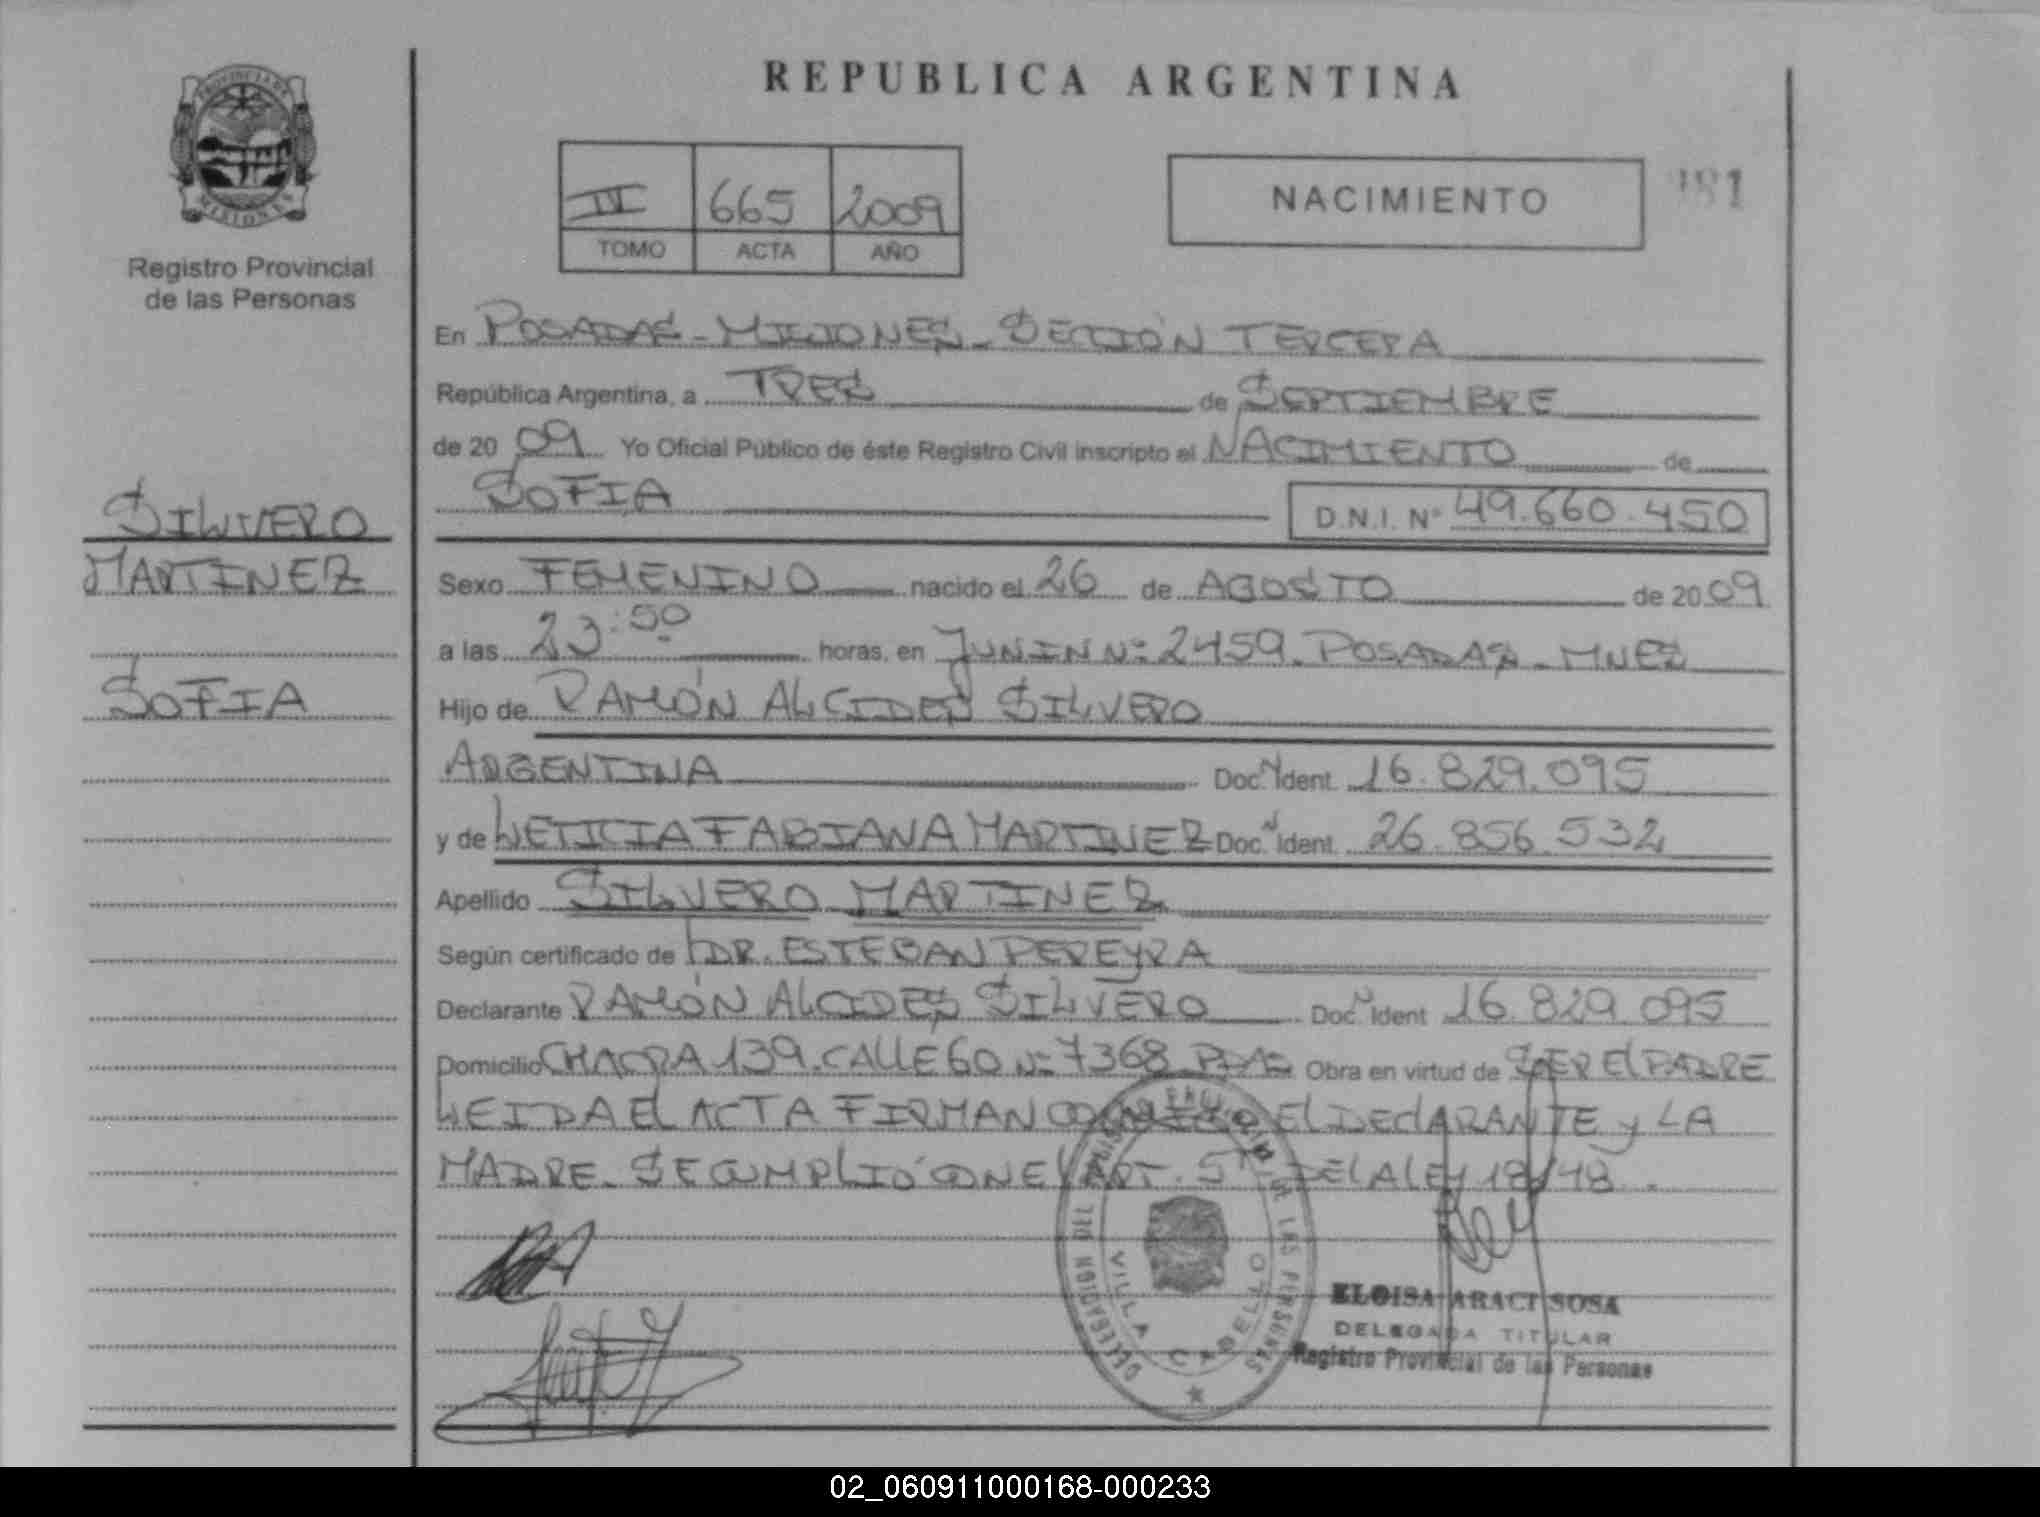 REPUBLICA ARGENTINA
PROVINCIA DE
MISIONES
Registro Provincial
de las Personas
665 2009
TOMO ACTA AÑO
NACIMIENTO
En POSADAS - MISIONES - SECCIÓN TERCERA
República Argentina, a TRES de SEPTIEMBRE
de 20 09 Yo Oficial Público de éste Registro Civil inscripto el NACIMIENTO de
SOFIA D.N.I. Nº 49.660.450
SILVERO
MARTINEZ
SOFIA
Sexo FEMENINO nacido el 26 de AGOSTO de 20 09
a las 23:50 horas, en JUNIN Nº 2459. POSADAS - MNES
Hijo de RAMÓN ALCIDES SILVERO
ARGENTINA Doc. Ident. 16.829.095
y de LETICIA FABIANA MARTINEZ Doc. Ident. 26.856.532
Apellido SILVERO MARTINEZ
Según certificado de DR. ESTEBAN PEREYRA
Declarante RAMÓN ALCIDES SILVERO Doc. Ident 16.829.095
Domicilio CHACRA 139. CALLE 60 Nº 7368 PDAS Obra en virtud de SER El PADRE
LEIDA El ACTA FIRMAN CONMIGO El DEClARANTE y LA
MADRE. SE CUMPLIÓ CON El ART. 5º DE LA LEY
DELEGACION DEL LAS PERSONAS
VILLA CABELLO
ELOISA ARACI SOSA
DELEGADA TITULAR
Registro Provincial de las Personas
02_060911000168-000233